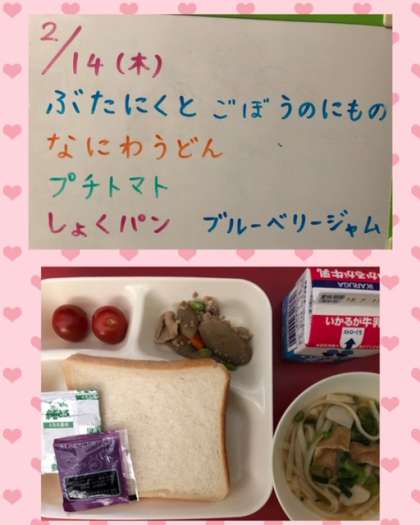 2/14(木)
ぶたにくと ごぼうのにもの
なにわうどん
プチトマト
しょくパン ブルーベリージャム
IKARUGA
いかるが牛乳
いかるが牛乳